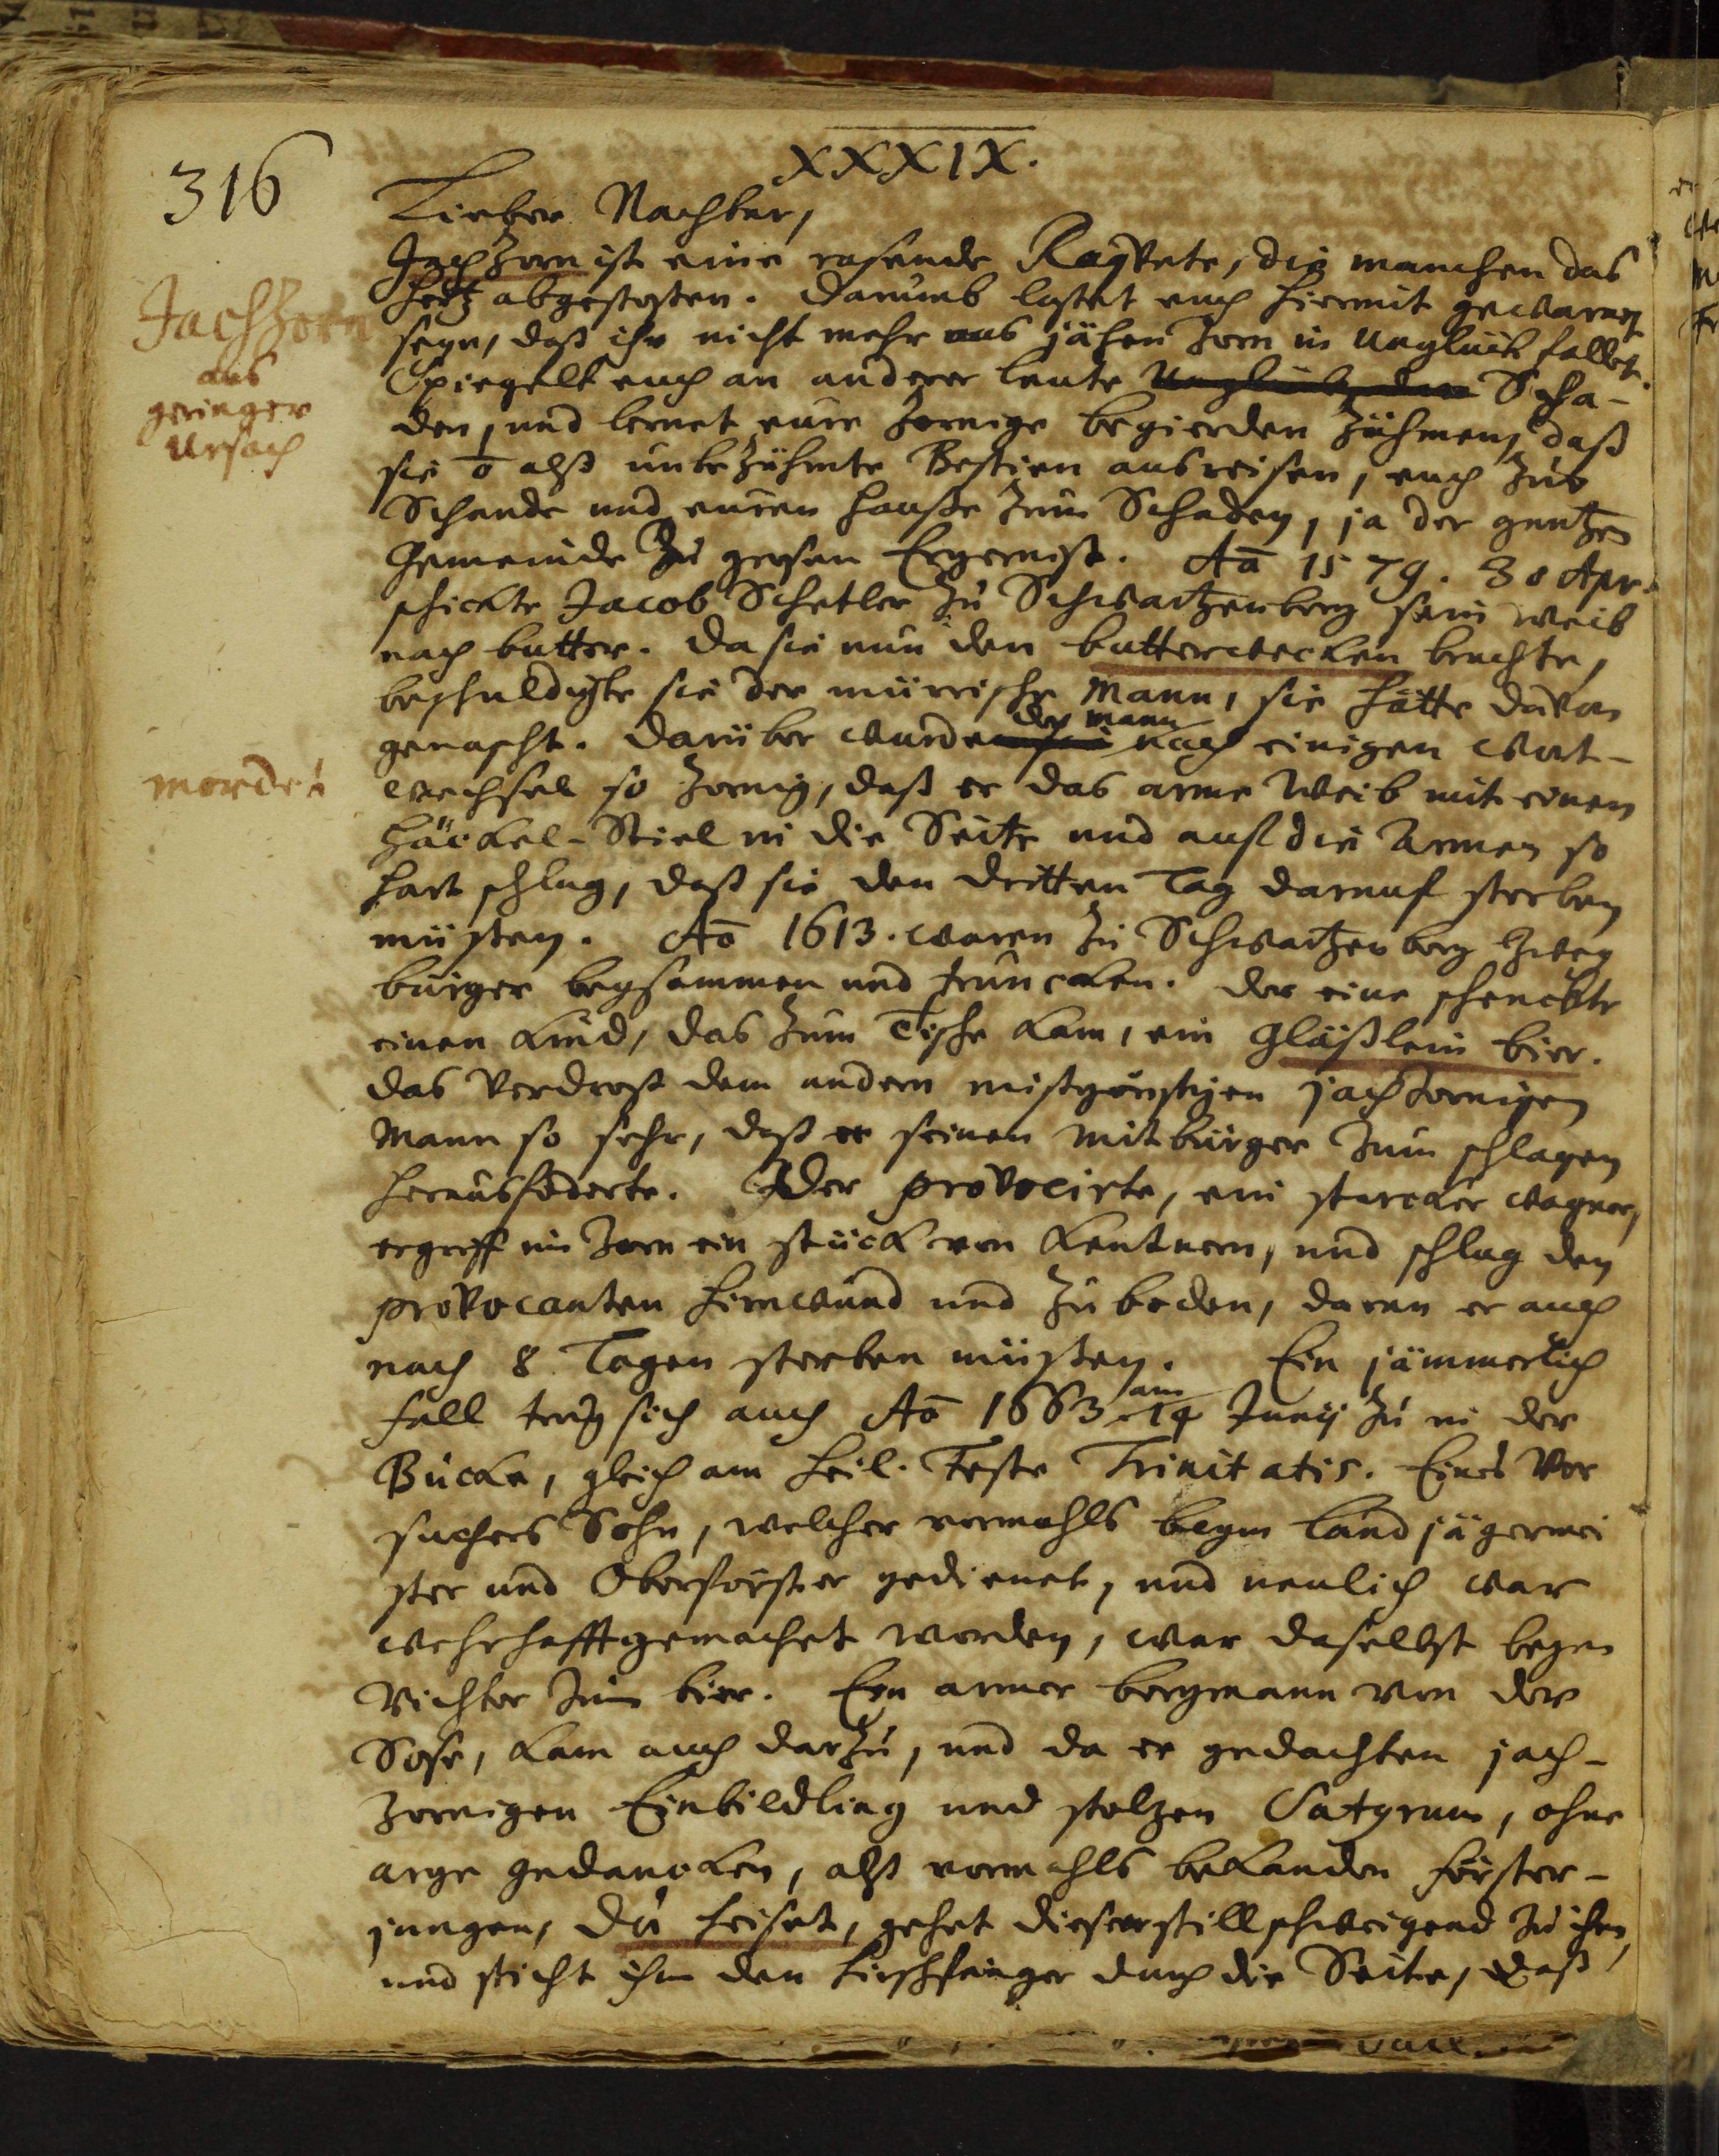 316
XXXIX.
Lieber Nachbar,
Jachzorn ist eine rasende Raqvete, die manchen das
Hertz abgestosten. Darumb lastet euch hiermit gewarnet
seyn, daß ihr nicht mehr aus jähen Zorn in Unglück fallet.
Spiegelt euch an anderer leute Unglück, den Scha-
den, und lernet eure zornige begierden Zähmen, daß
sie ō alß unbezähmte Bestien ausreisen, euch Zur
Schande und euren Hauße Zum Schaden, ja der gantzen
Gemeinde Zu grosen Ergernist. Ao 1579. 30 Apr.
schickte Jacob Schetler Zu Schwartzenberg sein weib
nach butter. Da sie nun den butterwecken brachte,
beschuldigte sie der mürrische Mann, sie hätte davon
genascht. Darüber wurde der mann nach einigen wort-
wechsel so zornig, daß er das arme Weib mit einen
Häckel-Stiel in die Seite und auf die Armen so
hart schlug, daß sie den dritten Tag darauf sterben
müsten. Ao 1613. waren Zu Schwartzenberg Zwey
bürger beysammen und truncken. Der eine schenckte
einen Kind, das zum Tische kam, ein Gläßlein bier.
das Verdrost dem andern mistgönstigen jachzornigen
Mann so sehr, daß er seinen mitbürger Zum schlagen
herausfoderte. Der provocirte, ein starcker wagner,
ergriff im Zorn ein stück von Kentnern, und schlug den
provocanten hirnwund und Zu boden, daran er auch
nach 8 Tagen sterben müsten. Ein jämmerlich
fall trug sich auch Ao 1663 am 14 Junij Zu in der
Bucka, gleich am heil. Feste Trinitatis. Eines Vor
suchers Sohn, welcher vormahls beym Landjägermei
ster und Oberförster gedienet, und neulich war
wehrhafftgemachet worden, war daselbst beym
Richter Zum bier. Ein armer bergmann von der
Sose, kam auch darzu, und da er gedachten jach-
zornigen Einbildling und stolzen Satyrum, ohne
arge gedancken, alß vormahls bekanden förster-
jungen, du heiset, gehet dieser stillschweigend Zu ihm,
und sticht ihm den Hirschfänger durch die Seite, daß
Jachzorn
aus
geringer
Ursach
mordet